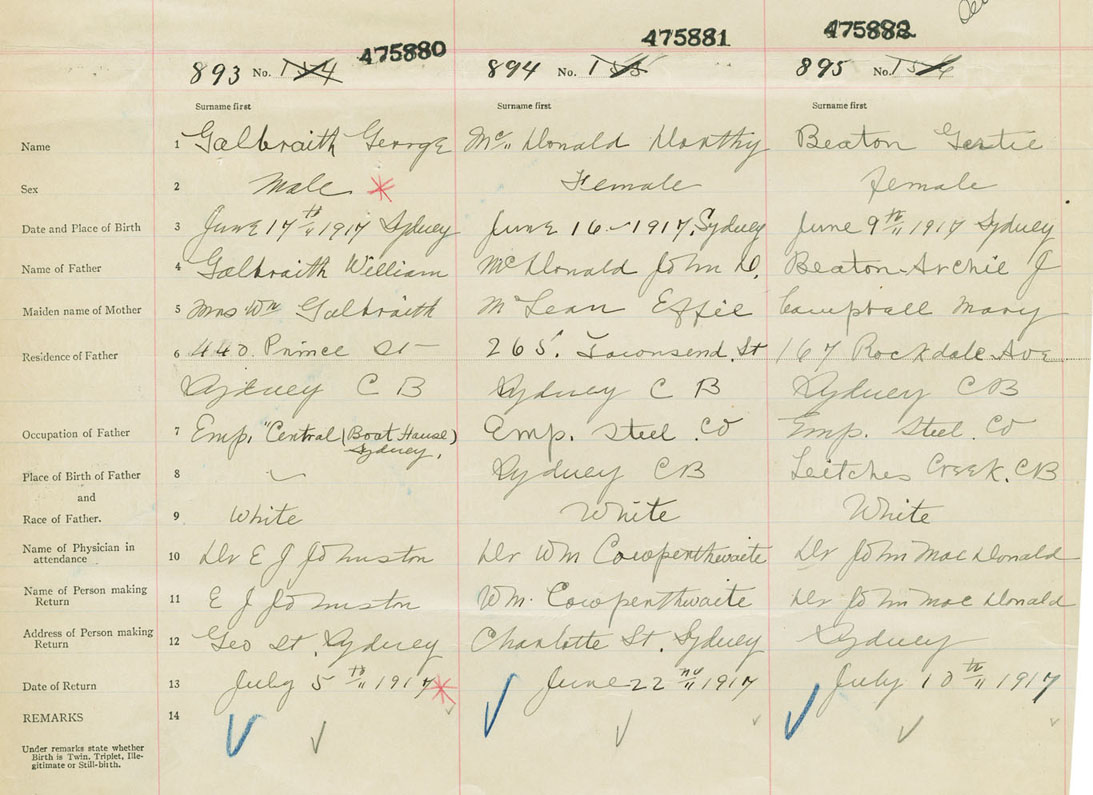 475880 475881 475882
893 No. 154 894 No. 155 895 No. 156
Surname first Surname first Surname first
Name 1 Galbraith George McDonald Dorthy Beaton Gertie
Sex 2 Male Female female
Date and Place of Birth 3 June 17th 1917 Sydney June 16 - 1917, Sydney June 9th 1917 Sydney
Name of Father 4 Galbraith William McDonald John D. Beaton Archie J
Maiden name of Mother 5 Mrs Wm Galbraith McLean Effie Campball Mary
Residence of Father 6 440. Prince St 265. Townsend. St 167 Rockdale Ave
Sydney C B Sydney C B Sydney CB
Occupation of Father 7 Emp. "Central (Boat House) Emp. Steel. Co Emp. Steel. Co
Sydney.
Place of Birth of Father 8 Sydney CB Leitches Creek. CB
and
Race of Father. 9 White White White
Name of Physician in
attendance 10 Dr E J Johnston Dr Wm Cowperthwaite Dr John MacDonald
Name of Person making
Return 11 E J Johnston Wm. Cowperthwaite Dr John MacDonald
Address of Person making
Return 12 Geo St. Sydney Charlotte St. Sydney Sydney
Date of Return 13 July 5th 1917 June 22nd 1917 July 10th 1917
REMARKS 14
Under remarks state whether
Birth is Twin, Triplet, Ille-
gitimate or Still-birth.